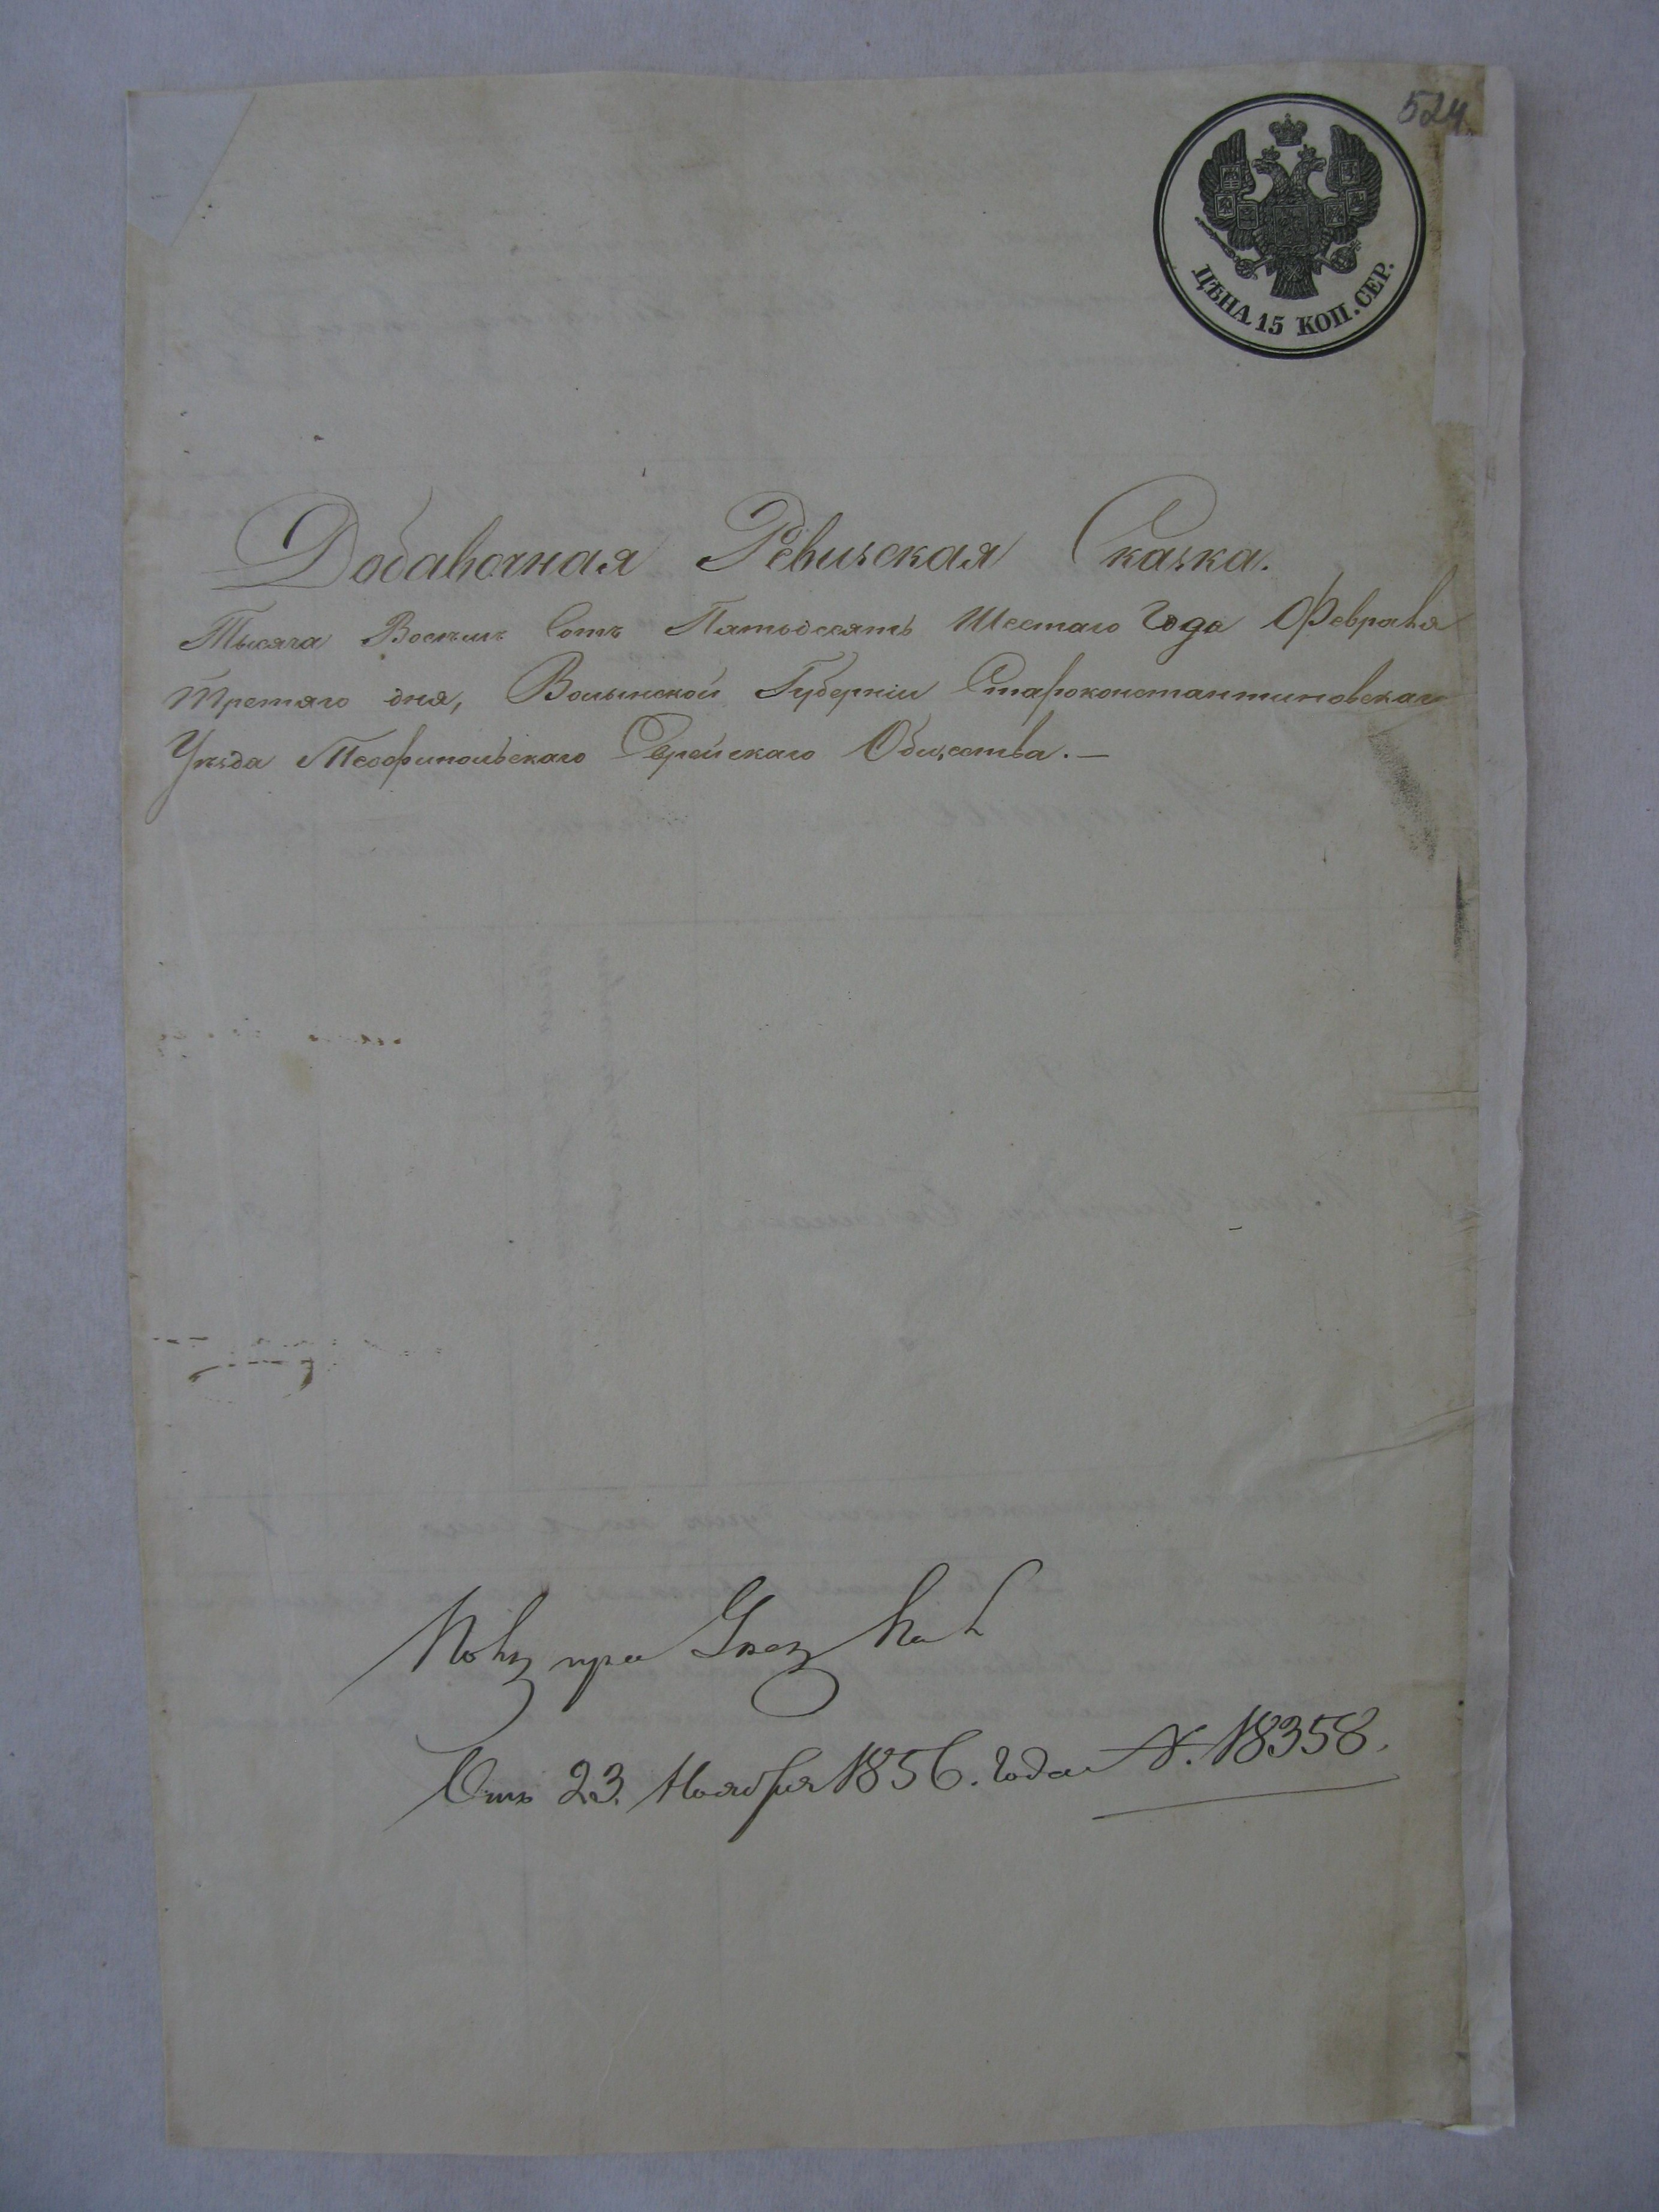 524
ЦѢНА 15 КОП. СЕР.
Добавочная Ревизская Сказка.
Тысяча Восемь Сотъ Пятьдесятъ Шестаго Года Февраля
третяго дня, Волынской Губерніи Староконстантиновскаго
Уѣзда Теофипольскаго Еврейскаго Общества. —
при Указѣ
Отъ 23. Ноября 1856. Года N. 18358.